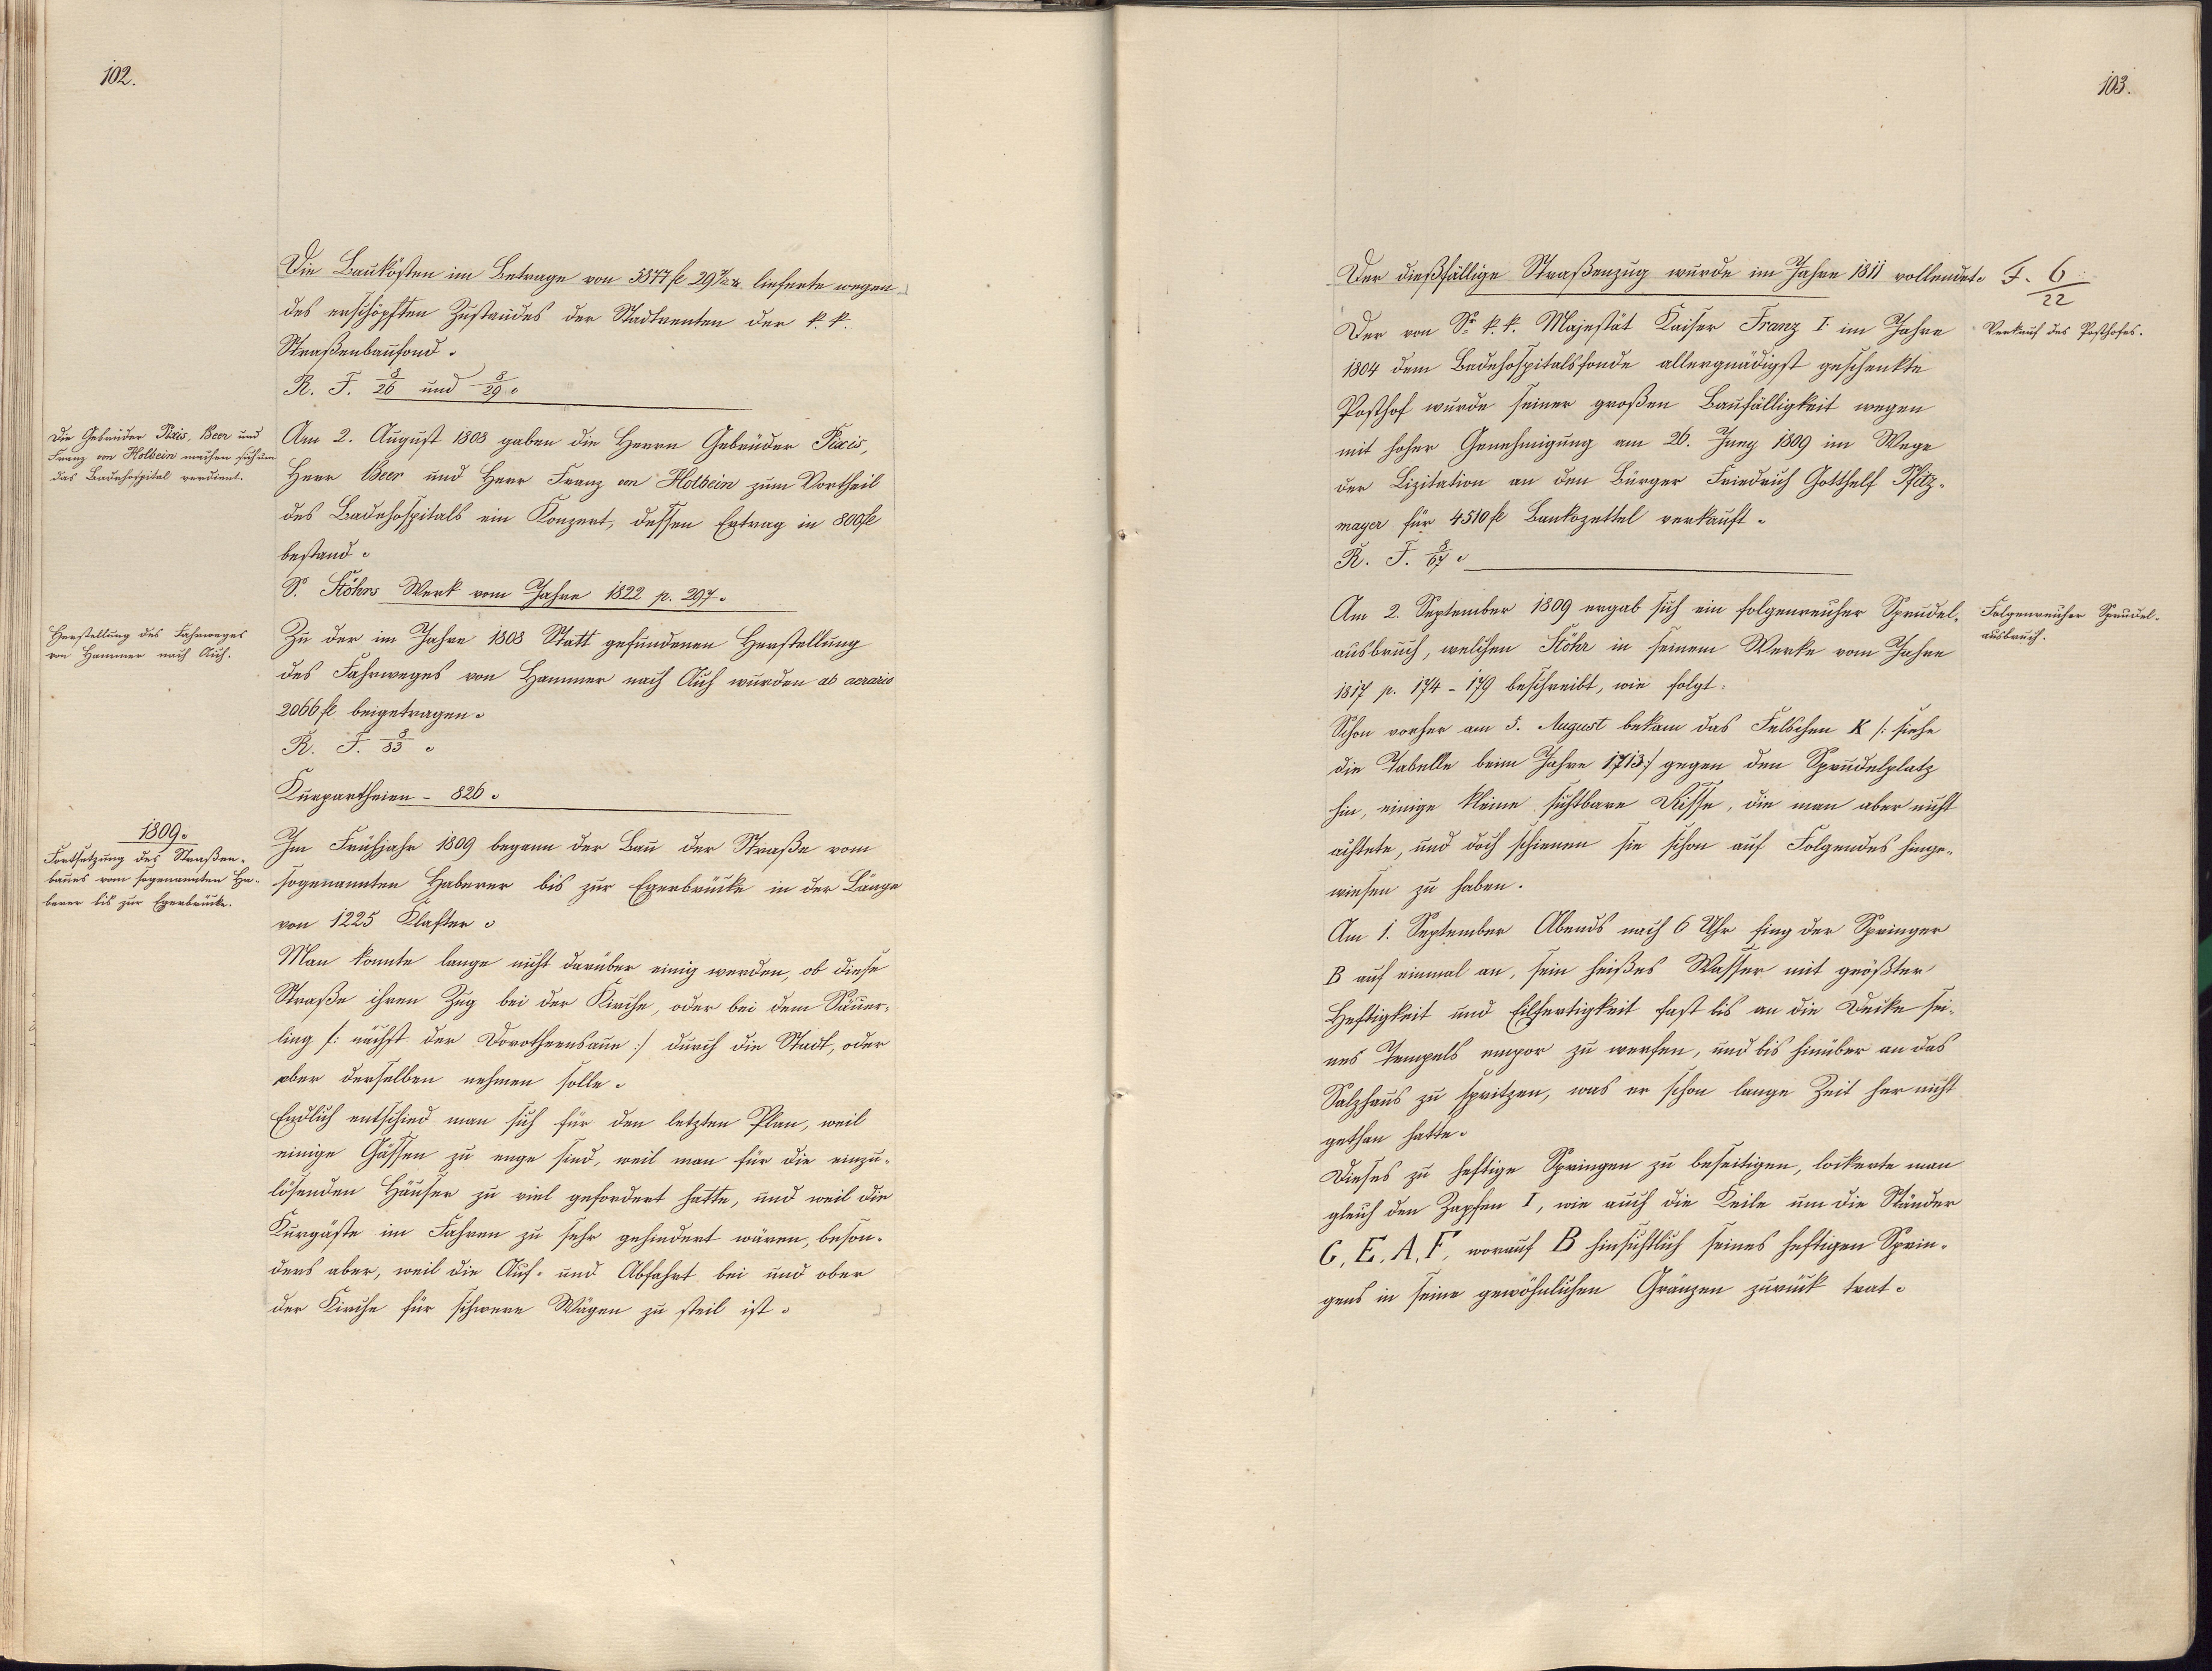 102.
Die Baukosten im Betrage von 5377 fl 29 lieferte wegen
des erschöpften Zustandes der Stadtrenten der k. k.
Straßenbaufond.
R. F. 8/26 und 8/29.
Die Gebrüder Pixis, Beer und
Franz von Holbein machen sich um
das Badehospital verdient.
Am 2. August 1808 gaben die Herrn Gebrüder Pixis,
Herr Beer und Herr Franz von Holbein zum Vortheil
des Badehospitals ein Konzert, dessen Ertrag in 800 fl
bestand.
S. Stöhrs Werk vom Jahre 1822 p. 297.
Herstellung des Fahrweges
von Hammer nach Aich.
Zu der im Jahre 1808 Statt gefundenen Herstellung
des Fahrweges von Hammer nach Aich wurden ab aerario
2066 fl beigetragen.
R. F. 8/33.
Kurpartheien - 826.
1809.
Fortsetzung des Straßen-
baues vom sogenannten Ha-
berer bis zur Egerbrücke.
Im Frühjahr 1809 begann der Bau der Straße vom
sogenannten Haberer bis zur Egerbrücke in der Länge
von 1225 Klafter.
Man konnte lange nicht darüber einig werden, ob diese
Straße ihren Zug bei der Kirche, oder bei dem Säuer-
ling /: nächst der Dorotheensaue :/ durch die Stadt, oder
ober derselben nehmen solle.
Endlich entschied man sich für den letzten Plan, weil
einige Gässen zu enge sind, weil man für die einzu-
lösenden Häuser zu viel gefordert hatte, und weil die
Kurgäste im Fahren zu sehr gehindert wären, beson-
ders aber, weil die Auf- und Abfahrt bei und ober
der Kirche für schwere Wägen zu steil ist.
103.
Der dießfällige Straßenzug wurde im Jahre 1811 vollendet.
F. 6/22
Verkauf des Posthofes.
Der von Sr k. k. Majestät Kaiser Franz I. im Jahre
1804 dem Badehospitalsfonde allergnädigst geschenkte
Posthof wurde seiner großen Baufälligkeit wegen
mit hoher Genehmigung am 26. Juny 1809 im Wege
der Lizitation an den Bürger Friedrich Gotthelf Pfitz-
mayer für 4510 fl Bankozettel verkauft.
R. F. 8/67.
Folgenreicher Sprudel-
ausbruch.
Am 2. September 1809 ergab sich ein folgenreicher Sprudel-
ausbruch, welchen Stöhr in seinem Werke vom Jahre
1817 p. 174 - 179 beschreibt, wie folgt:
Schon vorher am 5. August bekam das Felschen K /: siehe
die Tabelle beim Jahre 1713:/ gegen den Sprudelplatz
hin, einige kleine sichtbare Risse, die man aber nicht
achtete, und doch schienen sie schon auf Folgendes hinge-
wiesen zu haben.
Am 1. September Abends nach 6 Uhr fing der Springer
B auf einmal an, sein heißes Wasser mit größter
Heftigkeit und Eilfertigkeit fast bis an die Decke sei-
nes Tempels empor zu werfen, und bis hinüber an das
Salzhaus zu spritzen, was er schon lange Zeit her nicht
gethan hatte.
Dieses zu heftige Springen zu beseitigen, lockerte man
gleich den Zapfen I, wie auch die Keile um die Ständer
G, E, A, F, worauf B hinsichtlich seines heftigen Sprin-
gens in seine gewöhnlichen Gränzen zurück trat.